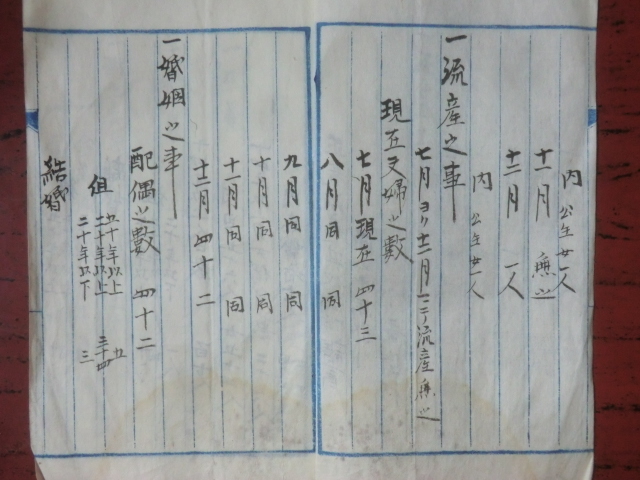 内公生女一人
十一月 無之
十二月 一人
内公生女一人
一流産之事
七月ヨリ十二月マテ流産無之
現在夫婦之数
七月現在 四十三
八月同 同
九月同 同
十月同 同
十一月同 同
十二月 四十二
一婚姻之事
配偶之数 四十二
但 五十年以上 五
二十年以上 三十四
二十年以下 三
結婚